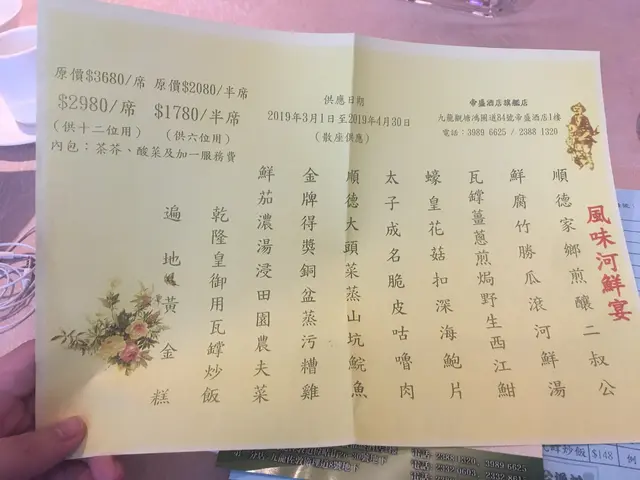 原價$3680/席 原價$2080/半席
$2980/席 $1780/半席
(供十二位用) (供六位用)
內包：茶芥、酸菜及加一服務費
供應日期
2019年3月1日至2019年4月30日
(散座供應)
帝盛酒店旗艦店
九龍觀塘鴻圖道84號帝盛酒店1樓
電話：3989 6625 / 2388 1320
風味河鮮宴
順德家鄉煎釀二叔公
鮮腐竹勝瓜滾河鮮湯
瓦罉薑蔥煎焗野生西江魽
蠔皇花菇扣深海鮑片
太子成名脆皮咕嚕肉
順德大頭菜蒸山坑鯇魚
金牌得獎銅盆蒸污糟雞
鮮茄濃湯浸田園農夫菜
乾隆皇御用瓦罉炒飯
遍地黃金糕
電話: 2388 1320, 3989 6625
炒飯 $148 例